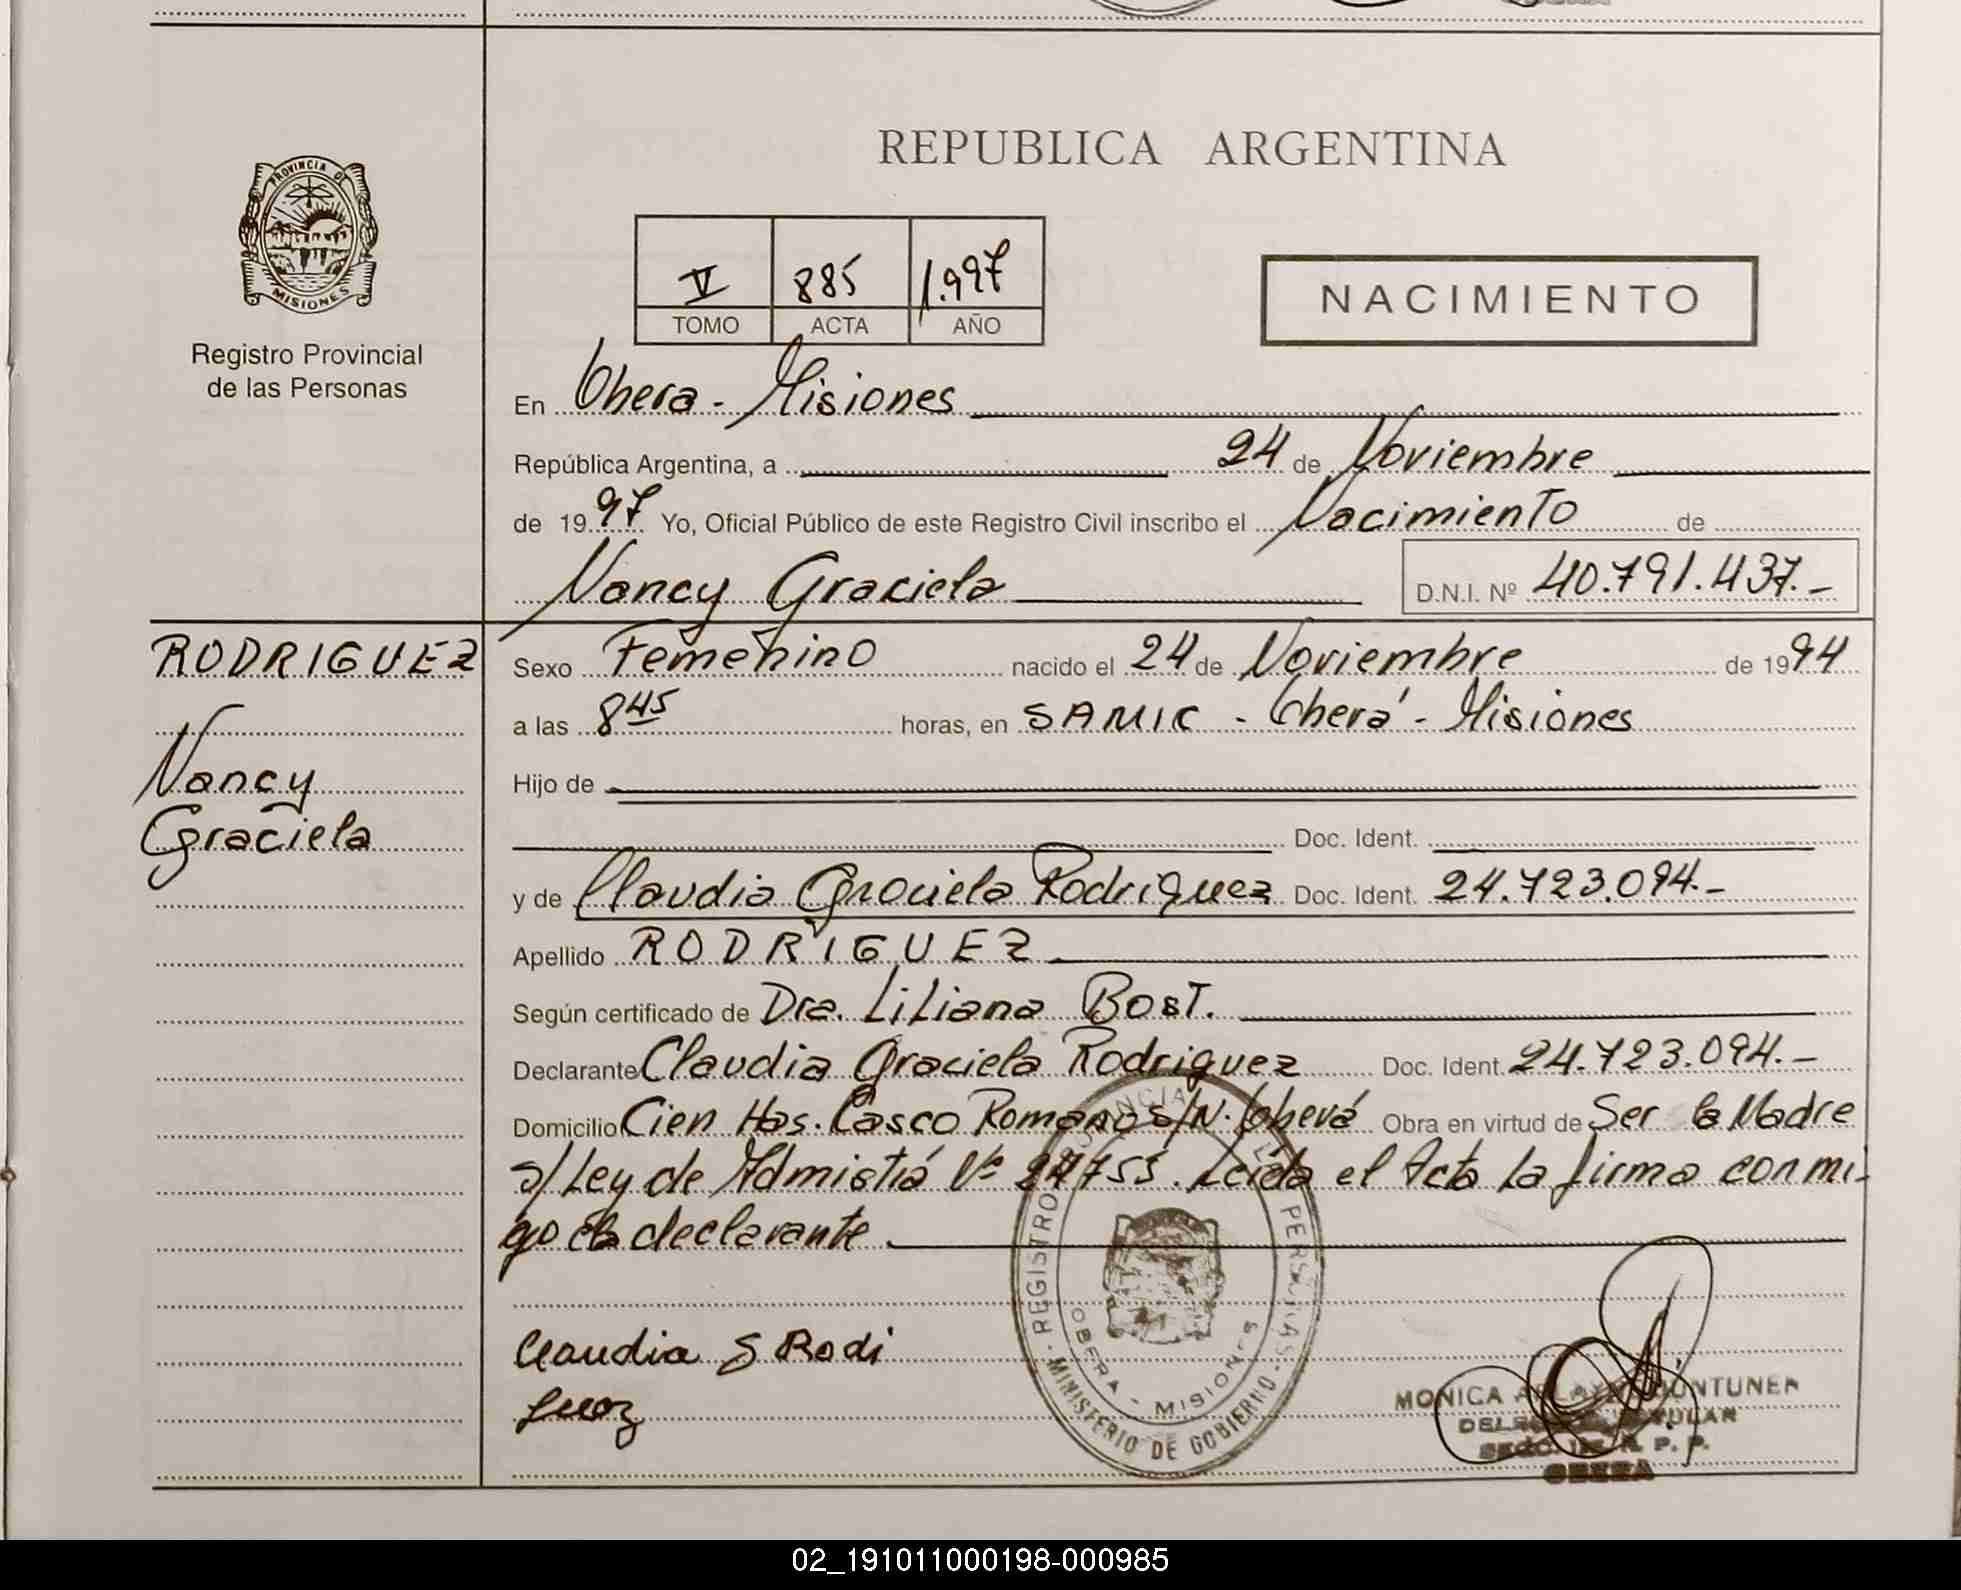 REPUBLICA ARGENTINA
PROVINCIA DE
MISIONES
Registro Provincial
de las Personas
V 885 1.997
TOMO ACTA AÑO
NACIMIENTO
En Oberá - Misiones
República Argentina, a 24 de Noviembre
de 1997 Yo, Oficial Público de este Registro Civil inscribo el Nacimiento de
Nancy Graciela D.N.I. Nº 40.791.437.-
RODRIGUEZ
Nancy
Graciela
Sexo Femenino nacido el 24 de Noviembre de 1994
a las 8 45 horas, en SAMIC - Oberá - Misiones
Hijo de
Doc. Ident.
y de Claudia Graciela Rodriguez Doc. Ident. 24.723.094.-
Apellido RODRIGUEZ
Según certificado de Dra. Liliana Bost.
Declarante Claudia Graciela Rodriguez Doc. Ident. 24.723.094.-
Domicilio Cien Has. Casco Romano S/N. Oberá Obra en virtud de Ser la Madre
s/Ley de Admistiá Nº 24755. Leída el Acta la firma conmi-
go la declarante
Claudia G Rodi
guez
REGISTRO PROVINCIAL DE LAS PERSONAS - MINISTERIO DE GOBIERNO
OBERA - MISIONES
MONICA
R. P. P.
OBERA
02_191011000198-000985